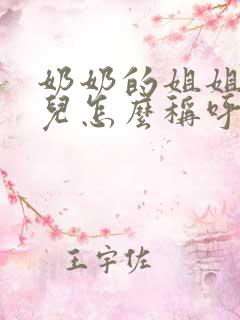 奶奶的姐姐
兒怎麼稱呼
王宇佐